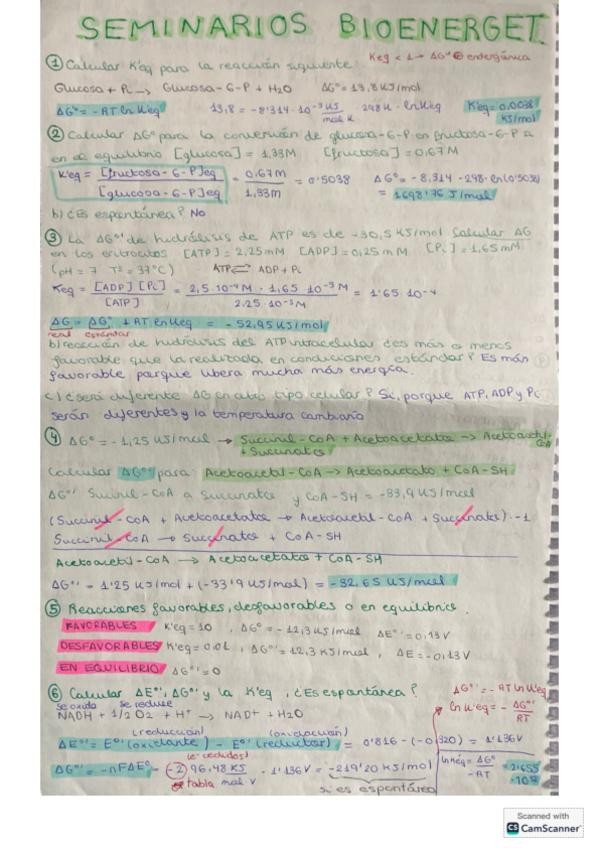 SEMINARIOS BIOENERGET.
① Calcular K'eq para la reacción siguiente:
Keq < 1 → ΔG° ⊕ endergónica
Glucosa + Pi → Glucosa-6-P + H2O ΔG°'= 13,8 KJ/mol
ΔG°' = -RT ln K'eq 13,8 = -8'314·10⁻³ KJ/mol·K · 298K · ln Keq K'eq = 0,0038 KJ/mol
② Calcular ΔG°' para la conversión de glucosa-6-P en fructosa-6-P si
en el equilibrio [glucosa] = 1,33M [fructosa] = 0,67M
K'eq = [fructosa-6-P]eq / [glucosa-6-P]eq = 0,67M / 1,33M = 0'5038 ΔG°' = -8,314·298·ln(0'5038)
= 1698'76 J/mol
b) ¿Es espontánea? No
③ La ΔG°' de hidrólisis de ATP es de -30,5 KJ/mol Calcular ΔG
en los eritrocitos [ATP] = 2,25 mM [ADP] = 0,25 mM [Pi] = 1,65 mM
(pH = 7 Tª = 37°C) ATP ⇄ ADP + Pi
Keq = [ADP][Pi] / [ATP] = 2,5·10⁻⁴M · 1,65·10⁻³M / 2.25·10⁻³M = 1'65·10⁻⁴
ΔG = ΔG°' + RT ln Keq = -52,95 KJ/mol
real estándar
b) reacción de hidrólisis del ATP intracelular ¿es más o menos
favorable que la realizada en condiciones estándar? Es más
favorable porque libera mucha más energía.
c) ¿será diferente ΔG en otro tipo celular? Sí, porque ATP, ADP y Pi
serán diferentes y la temperatura cambiaría
④ ΔG°' = -1,25 KJ/mol → Succinil-CoA + Acetoacetato → Acetoacetil-CoA
+ Succinato
Calcular ΔG°' para: Acetoacetil-CoA → Acetoacetato + CoA-SH
ΔG°' Succinil-CoA a Succinato y CoA-SH = -33,9 KJ/mol
(Succinil-CoA + Acetoacetato → Acetoacetil-CoA + Succinato)·-1
Succinil-CoA → Succinato + CoA-SH
Acetoacetil-CoA → Acetoacetato + CoA-SH
ΔG°' = 1'25 KJ/mol + (-33'9 KJ/mol) = -32,65 KJ/mol
⑤ Reacciones favorables, desfavorables o en equilibrio.
FAVORABLES K'eq = 10, ΔG° = -12,3 KJ/mol ΔE°' = 0,13V
DESFAVORABLES K'eq = 0.01, ΔG°' = 12,3 KJ/mol, ΔE = -0,13V
EN EQUILIBRIO ΔG°' = 0
⑥ Calcular ΔE°', ΔG°' y la K'eq, ¿Es espontánea?
ΔG°' = -RT ln K'eq
se oxida se reduce
ln K'eq = - ΔG°' / RT
NADH + 1/2 O2 + H⁺ → NAD⁺ + H2O
(reducción) (oxidación)
ΔE°' = E°' (oxidante) - E°' (reductor) = 0'816 - (-0'320) = 1'136V
(e⁻ cedidos)
ΔG°' = -nFΔE°' - (-2) 96,48 KJ / mol·V · 1'136V = -219'20 KJ/mol
tabla
sí es espontánea
Scanned with
CS CamScanner